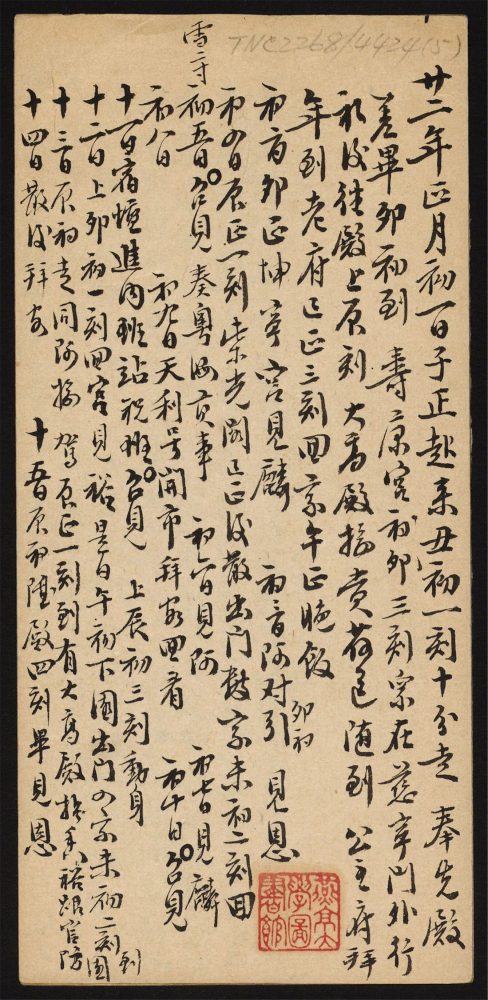 廿二年正月初一日子正起来丑初一刻十分走 奉先殿
差畢卯初到 壽康宮初卯三刻宗在慈寧門外行
礼後往殿上辰刻 大高殿搶賞荷包随到 公主府拜
年到老府巳正三刻回家午正晚飯
初二日卯正坤寧宮見麟 初三日阿对引 卯初 見恩
初四日辰正一刻紫光阁巳正後散出門韩家未初二刻回
初五日召見奏粤海貢事 初六日見阿 初七日見麟
初八日 初九日天利号開市拜客回看 初十日召見
十一日宿壇進内班站祝班召見 上辰初三刻動身
十二日上卯初一刻回宮見裕 是日午初下園出門四家未初二刻到園
十三日辰初走同阿搶 駕辰正一刻到有大高殿搶 裕跟官防
十四日散後拜客 十五日辰初陞殿四刻畢見恩
雪守
TNC2268/4424(5)
燕京大
學圖
書館